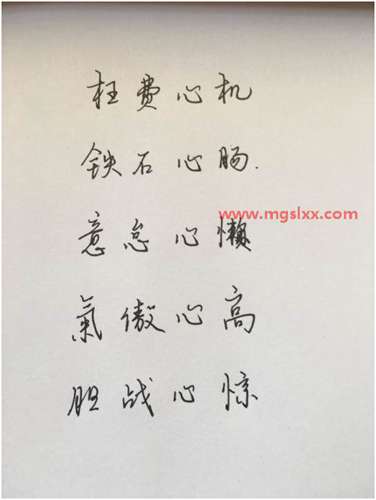 枉费心机
铁石心肠.
www.mgslxx.com
意怠心懒
氣傲心高
胆战心惊